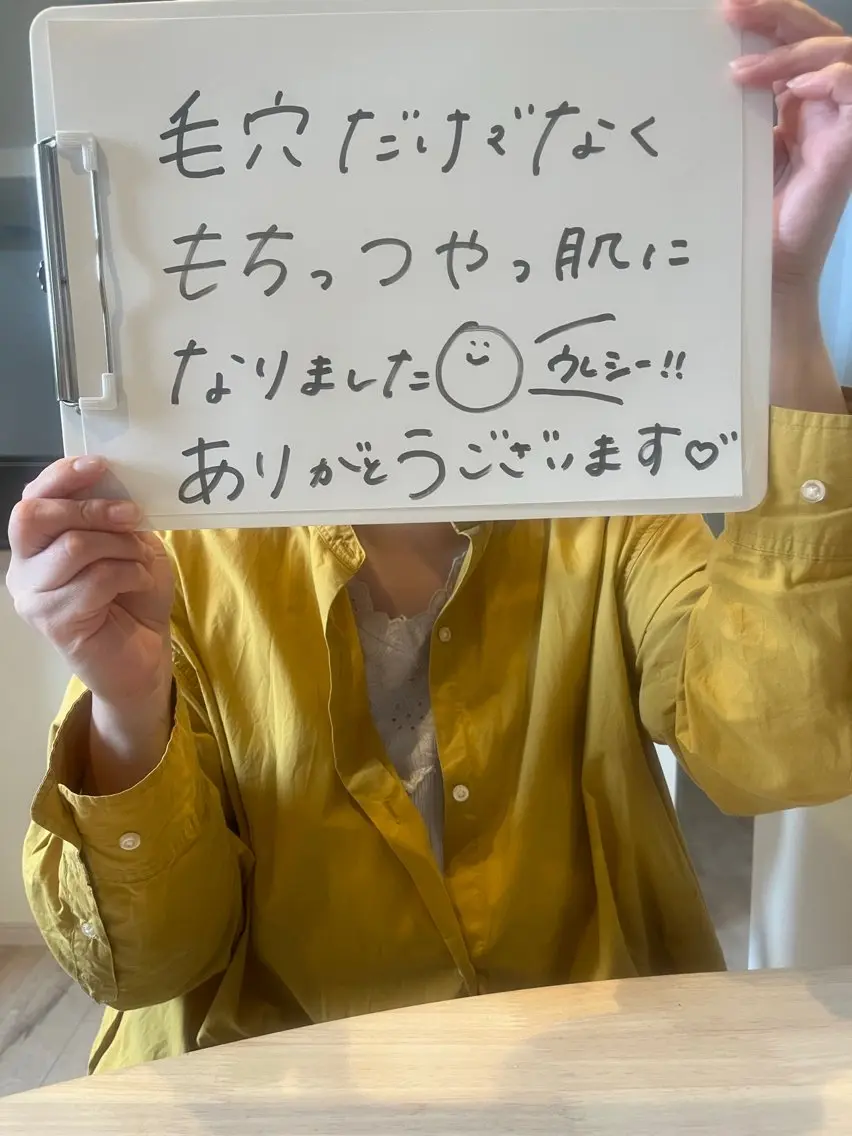 毛穴だけでなく
もちっつやっ肌に
なりました ウレシー!!
ありがとうございます♡